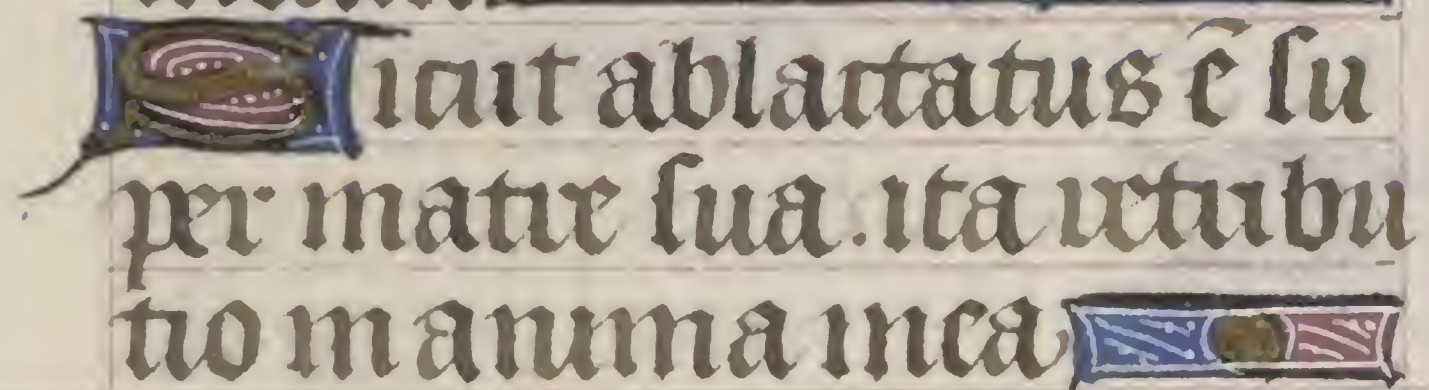 Sicut ablactatus ē su
per matre sua. ita retribu
tio in anima mea